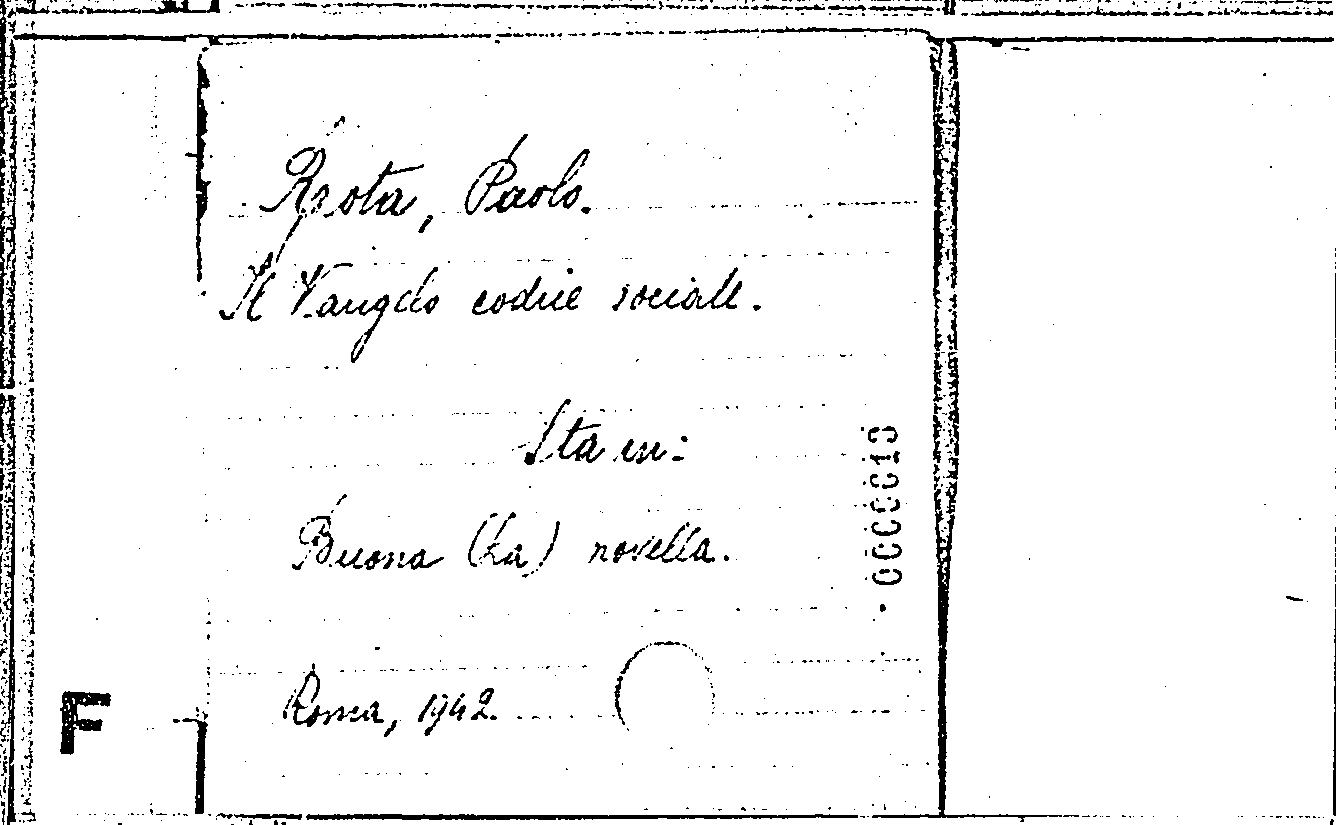 Rota, Paolo.
Il Vangelo codice sociale.
Sta in:
Buona (La) novella.
0000013
Roma, 1942.
F